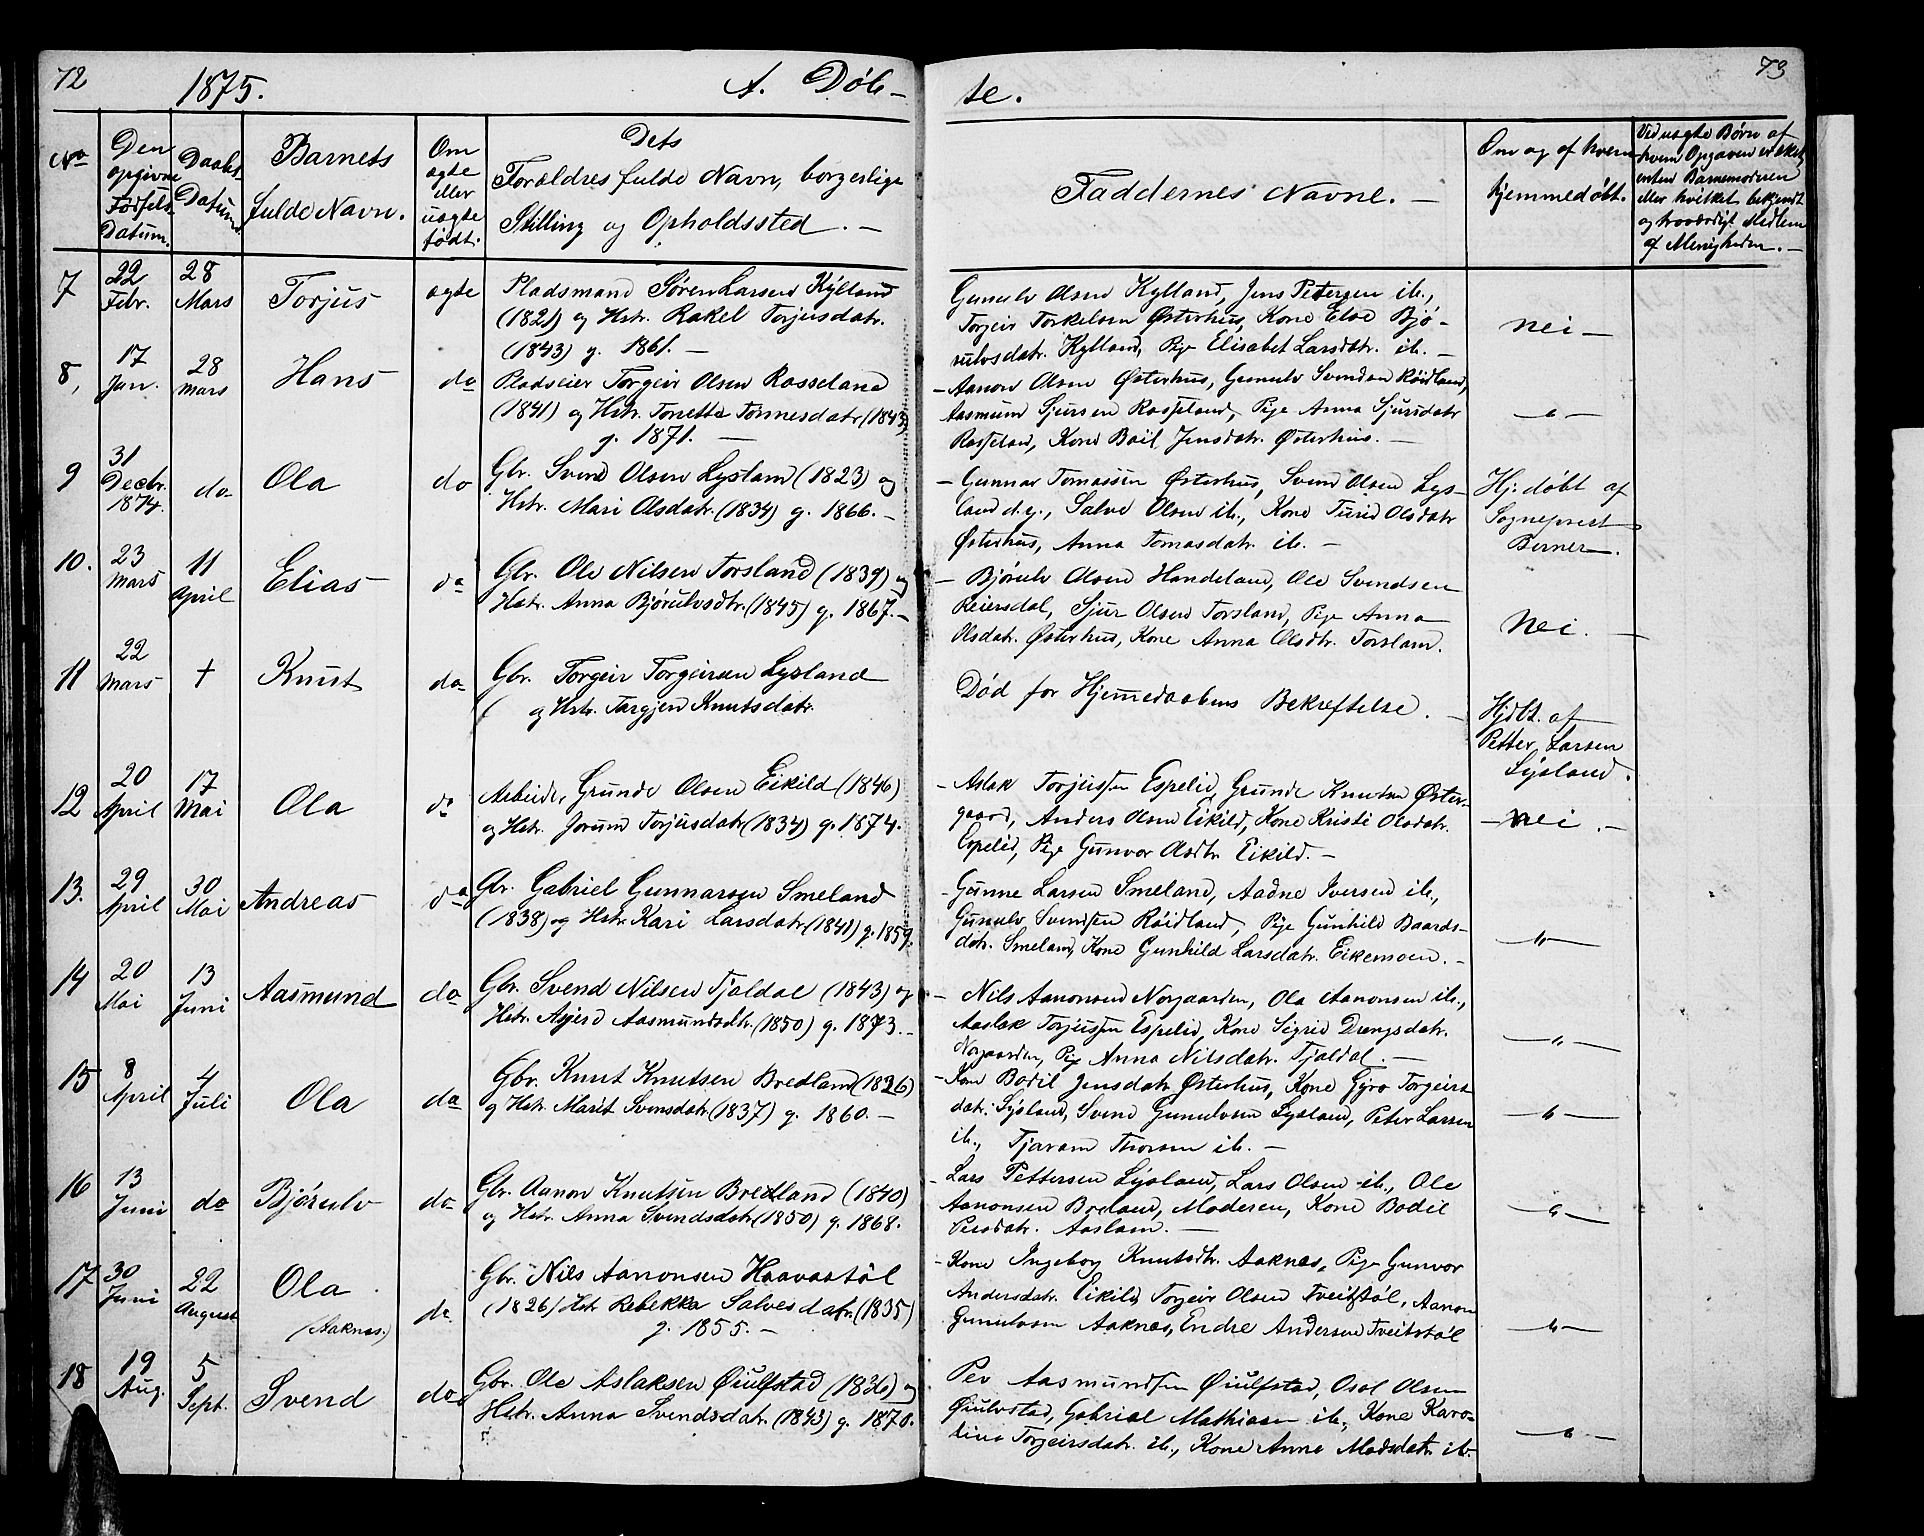 72
1875.
A. Døb-
te.
73
No
Den
opgivne
Fødsels
Datum.
Daabs-
Datum
Barnets
fulde Navn.
Om
ægte
eller
uægte
født.
Dets
Forældres fulde Navn, borgerlige
Stilling og Opholdssted. -
Faddernes Navne. -
Om og af hvem
hjemmedøbt.
Ved uægte Børn af
hvem Opgaven er sket,
enten Barnemoderen
eller hvilket bekjendt
og troværdigt Medlem
af Menigheden. -
7
22
Febr.
28
Mars
Torjus
ægte
Pladsmand Søren Larsen Kylland
(1821) og Hstr. Rakel Torjusdatr.
(1843) g. 1861. -
Gunulv Olsen Kylland, Jens Petersen ib.,
Torgeir Torkelsen Østerhus, Kone Elve Bjø-
rulvsdatr. Kylland, Pige Elisabet Larsdatr. ib. -
nei -
8,
17
Jan.
28
Mars
Hans
do
Pladseier Torgeir Olsen Rosseland
(1841) og Hstr. Tonette Tønnesdatr (1843)
g. 1871. -
- Aanon Olsen Østerhus, Gunulv Svendsen Røidland,
Aasmund Sjursen Rosseland, Pige Anna Sjursdatr
Rosseland, Kone Boil Jensdatr. Østerhus. -
-"-
9
31
Decbr.
1874.
do
Ola
do
Gbr. Svend Olsen Lysland (1823) og
Hstr. Mari Olsdatr. (1834) g. 1866. -
- Gunnar Tomassen Østerhus, Svend Olsen Lys-
land d.y., Salve Olsen ib., Kone Turid Olsdatr
Østerhus, Anna Tomasdatr. ib. -
Hj. døbt af
Sogneprest
Berner.
10.
23
Mars
11
April
Elias
do
Gbr. Ole Nilsen Torsland (1839) og
Hstr. Anna Bjørulvsdtr. (1845) g. 1867. -
- Bjørulv Olsen Handeland, Ole Svendsen
Reiersdal, Sjur Olsen Torsland, Pige Anna
Olsdatr. Østerhus, Kone Anna Olsdtr. Torsland.
Nei. -
11
22
Mars
+
Knut
do
Gbr. Torgeir Torgeirsen Lysland
( og Hstr. Targjerd Knutsdatr.
Død før Hjemmedaabens Bekræftelse. -
Hjdbt. af
Petter Larsen
Lysland.
12
20
April
17
Mai
Ola
do
Arbeider Grunde Olsen Eikild (1846)
og Hstr. Jorunn Torjusdatr (1834) g. 1874.
- Aslak Torjussen Espelid, Grunde Knutsen Øster-
gaard, Anders Olsen Eikild, Kone Kristi Olsdatr.
Espelid, Pige Gunvor Olsdtr. Eikild. -
- nei. -
13.
29
April
30
Mai
Andreas
do
Gbr. Gabriel Gunnarsen Smeland
(1838) og Hstr. Kari Larsdatr (1841) g. 1859.
- Gunne Larsen Smeland, Aadne Iversen ib.,
Gunulv Svendsen Røidland, Pige Gunhild Baards-
datr. Smeland, Kone Gunhild Larsdatr. Eikemoen. -
-"-
14
20
Mai
13
Juni
Aasmund
do
Gbr. Svend Nilsen Tjaldal (1843) og
Hstr. Asjerd Aasmundsdtr. (1850) g. 1873. -
- Nils Aanonsen Norgaarden, Ola Aanonsen ib.,
Aaslak Torjussen Espelid, Kone Sigrid Drengsdatr.
Norgaarden, Pige Anna Nilsdatr. Tjaldal. -
-"-
15
8
April
4
Juli
Ola
do
Gbr. Knut Knutsen Bredland (1826)
og Hstr. Marit Svensdatr (1837) g. 1860. -
- Kone Bodil Jensdatr Østerhus, Kone Gyro Torgeirs
datr. Lysland, Svend Gunulvsen Lysland, Peter Larsen
ib., Tjaram Thorsen ib. -
-"-
16
13
Juni
do
Bjørulv
do
Gbr. Aanon Knutsen Bredland (1840)
og Hstr. Anna Svendsdatr (1850) g. 1868.
- Lars Pettersen Lysland, Lars Olsen ib., Ole
Aanonsen Breland, Moderen, Kone Bodil
Persdatr. Aasland. -
-"-
17
30
Juni
22
August
Ola
(Aaknes.)
do
Gbr. Nils Aanonsen Haavastøl
(1826) Hstr Rebekka Salvesdatr. (1835)
g. 1855. -
- Kone Ingeborg Knutsdtr. Aaknes, Pige Gunvor
Andersdatr. Eikild, Torgeir Olsen Tveitstøl, Aanon
Gunulvsen Aaknes, Endre Andersen Tveitstøl
-"-
18
19
Aug.
5
Sept.
Svend
do
Gbr. Ole Aslaksen Øiulfstad (1836) og
Hstr. Anna Svendsdatr. (1843) g. 1870.
Per Aasmundsen Øiulfstad, Osol Olsen
Øiulvstad, Gabriel Mathiasen ib., Kone Karo-
line Torgeirsdatr. ib., Kone Anne Madsdatr ib.
-"-